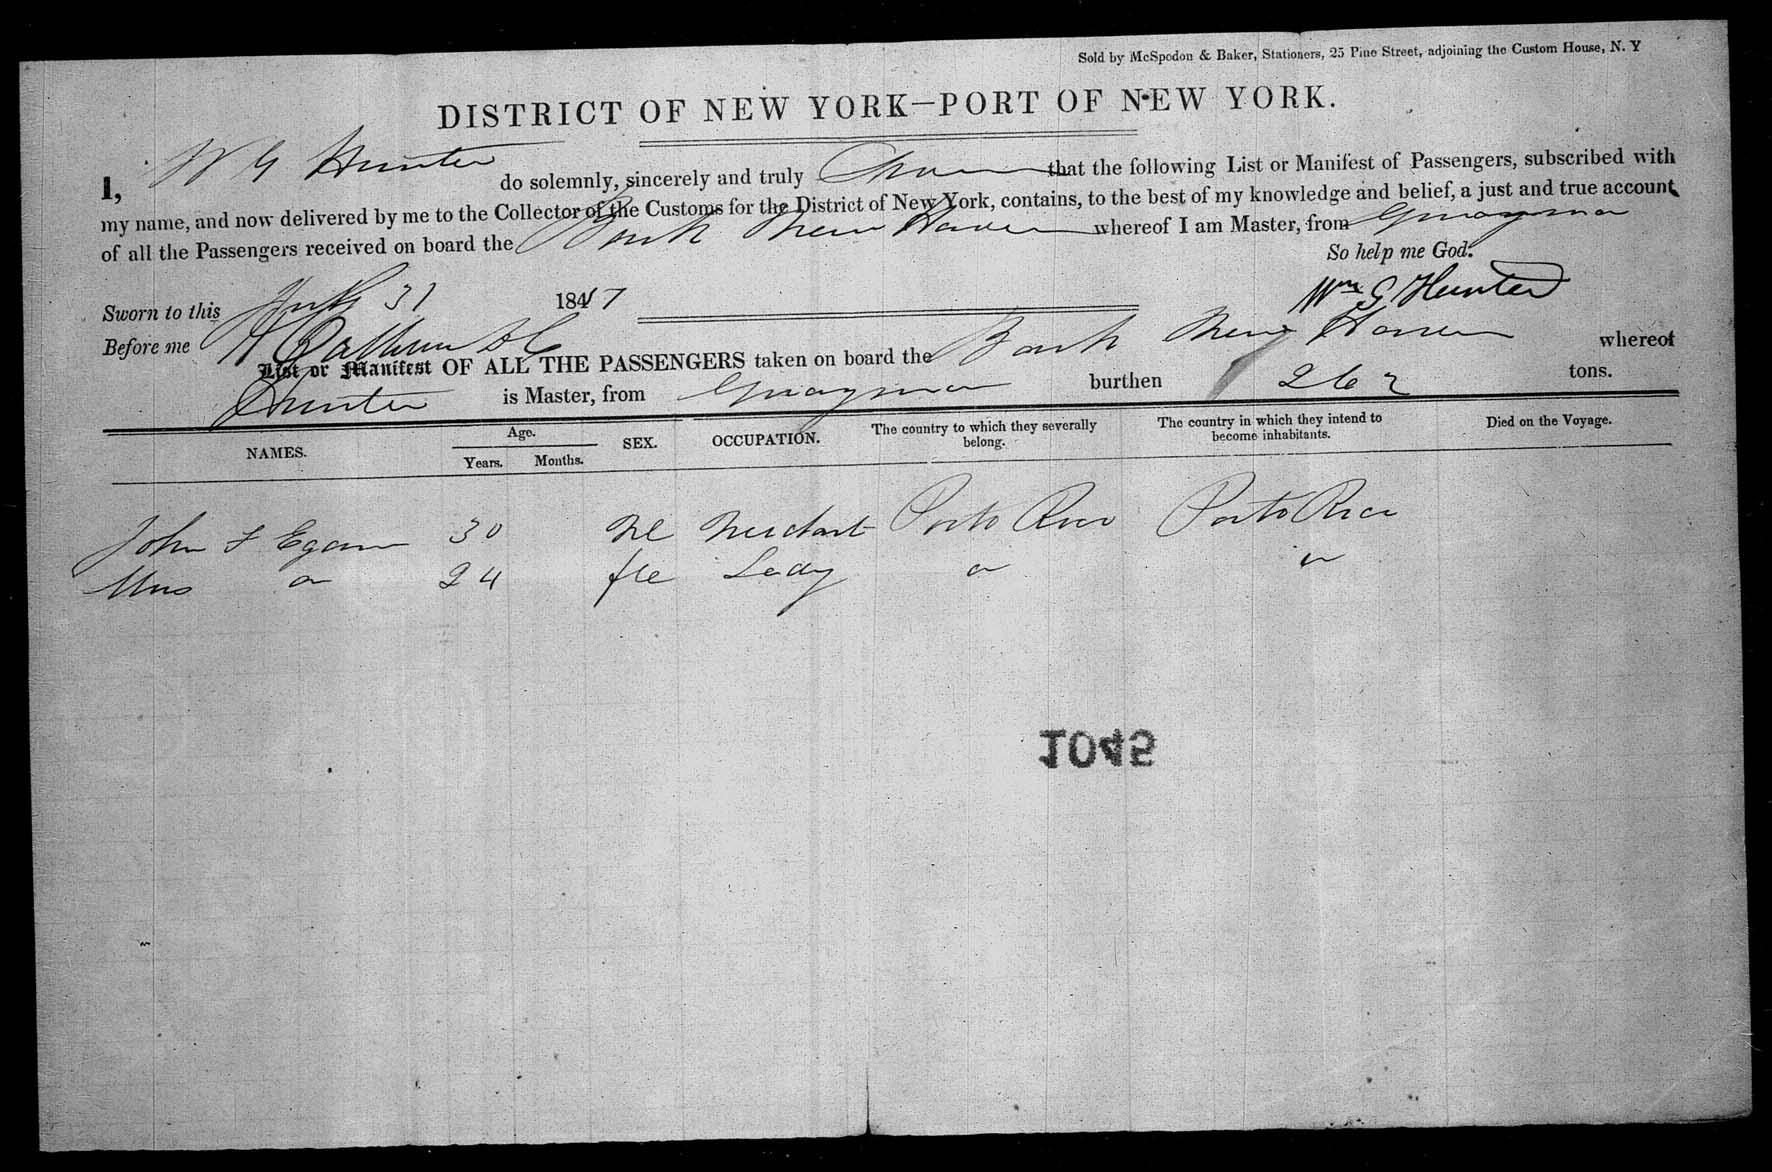 Sold by McSpedon & Baker, Stationers, 25 Pine Street, adjoining the Custom House, N. Y
DISTRICT OF NEW YORK—PORT OF NEW YORK.
I, W G Hunter do solemnly, sincerely and truly Swear that the following List or Manifest of Passengers, subscribed with
my name, and now delivered by me to the Collector of the Customs for the District of New York, contains, to the best of my knowledge and belief, a just and true account
of all the Passengers received on board the Bark New Haven whereof I am Master, from Guayama
So help me God.
Sworn to this July 31 1847
Wm G Hunter
Before me
List or Manifest OF ALL THE PASSENGERS taken on board the Bark New Haven whereof
Hunter is Master, from Guayama burthen 262 tons.
NAMES. Age. Years. Months. SEX. OCCUPATION. The country to which they severally belong. The country in which they intend to become inhabitants. Died on the Voyage.
John F Egan 30 Ml Merchant Porto Rico Porto Rico
Mrs " 24 fle Lady " "
1045